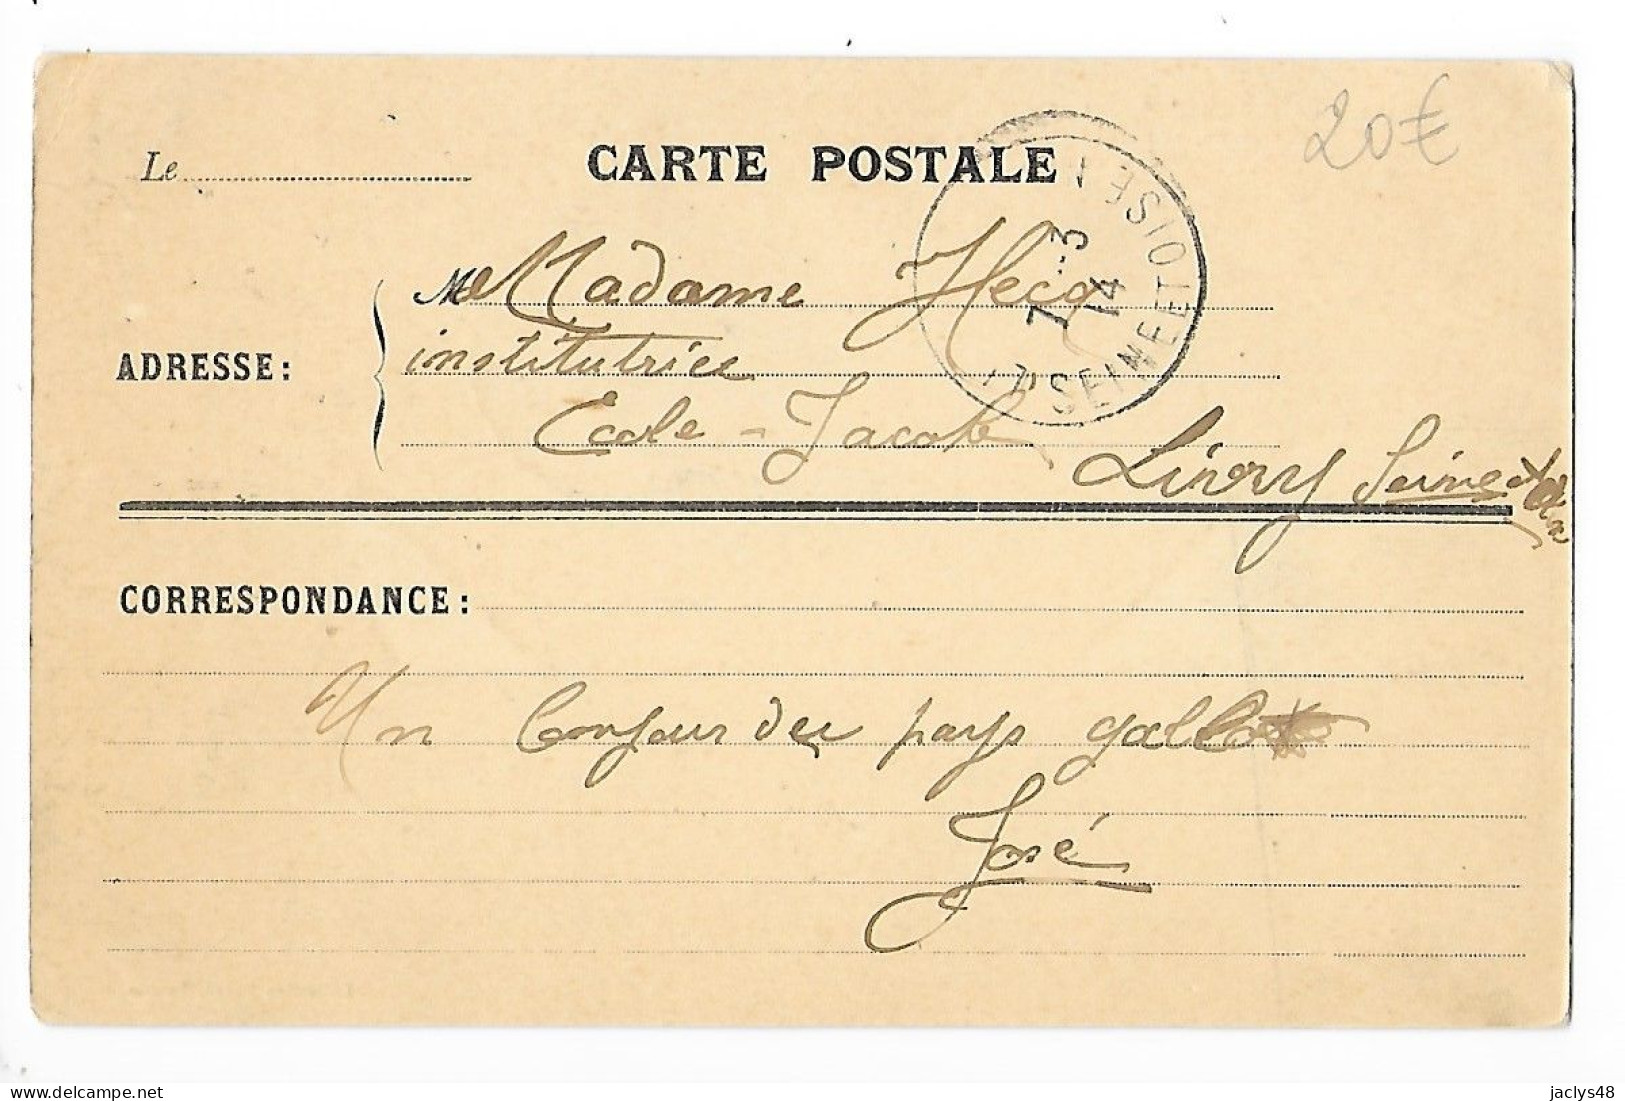 20€
Le
CARTE POSTALE
SEINE ET OISE
7 -3
14
M Madame Hecq
ADRESSE :
institutrice
Ecole - Jacob
Livry Seine et Oise
CORRESPONDANCE :
Un bonjour du pays gallot
José
delcampe.net
jaclys48